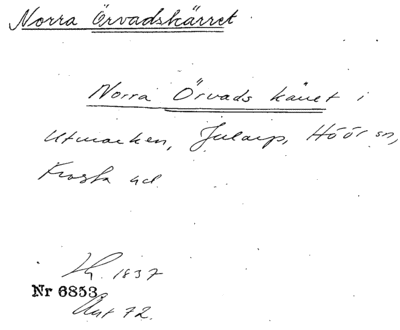 Norra Örvadskärret
Norra Örvads kärret i
Utmarken, Jularp, Höör sn,
Frosta hd
1837
Nr 6853
Akt 72.